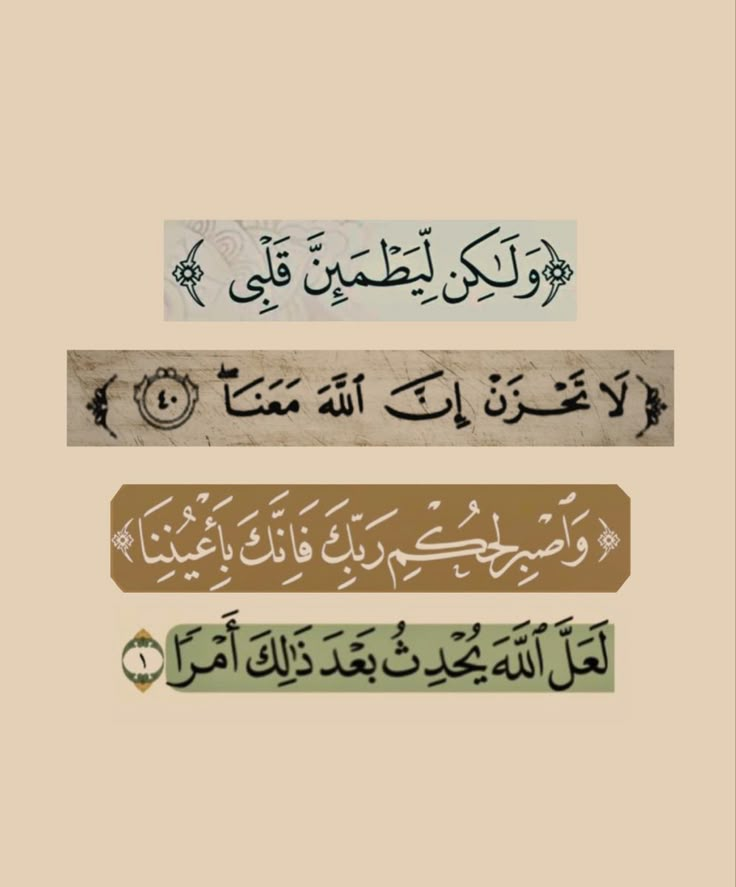 ﴿وَلَـٰكِن لِّيَطْمَئِنَّ قَلْبِى﴾
﴿لَا تَحْزَنْ إِنَّ ٱللَّهَ مَعَنَا ۖ ٤٠﴾
﴿وَٱصْبِرْ لِحُكْمِ رَبِّكَ فَإِنَّكَ بِأَعْيُنِنَا﴾
لَعَلَّ ٱللَّهَ يُحْدِثُ بَعْدَ ذَٰلِكَ أَمْرًا ١